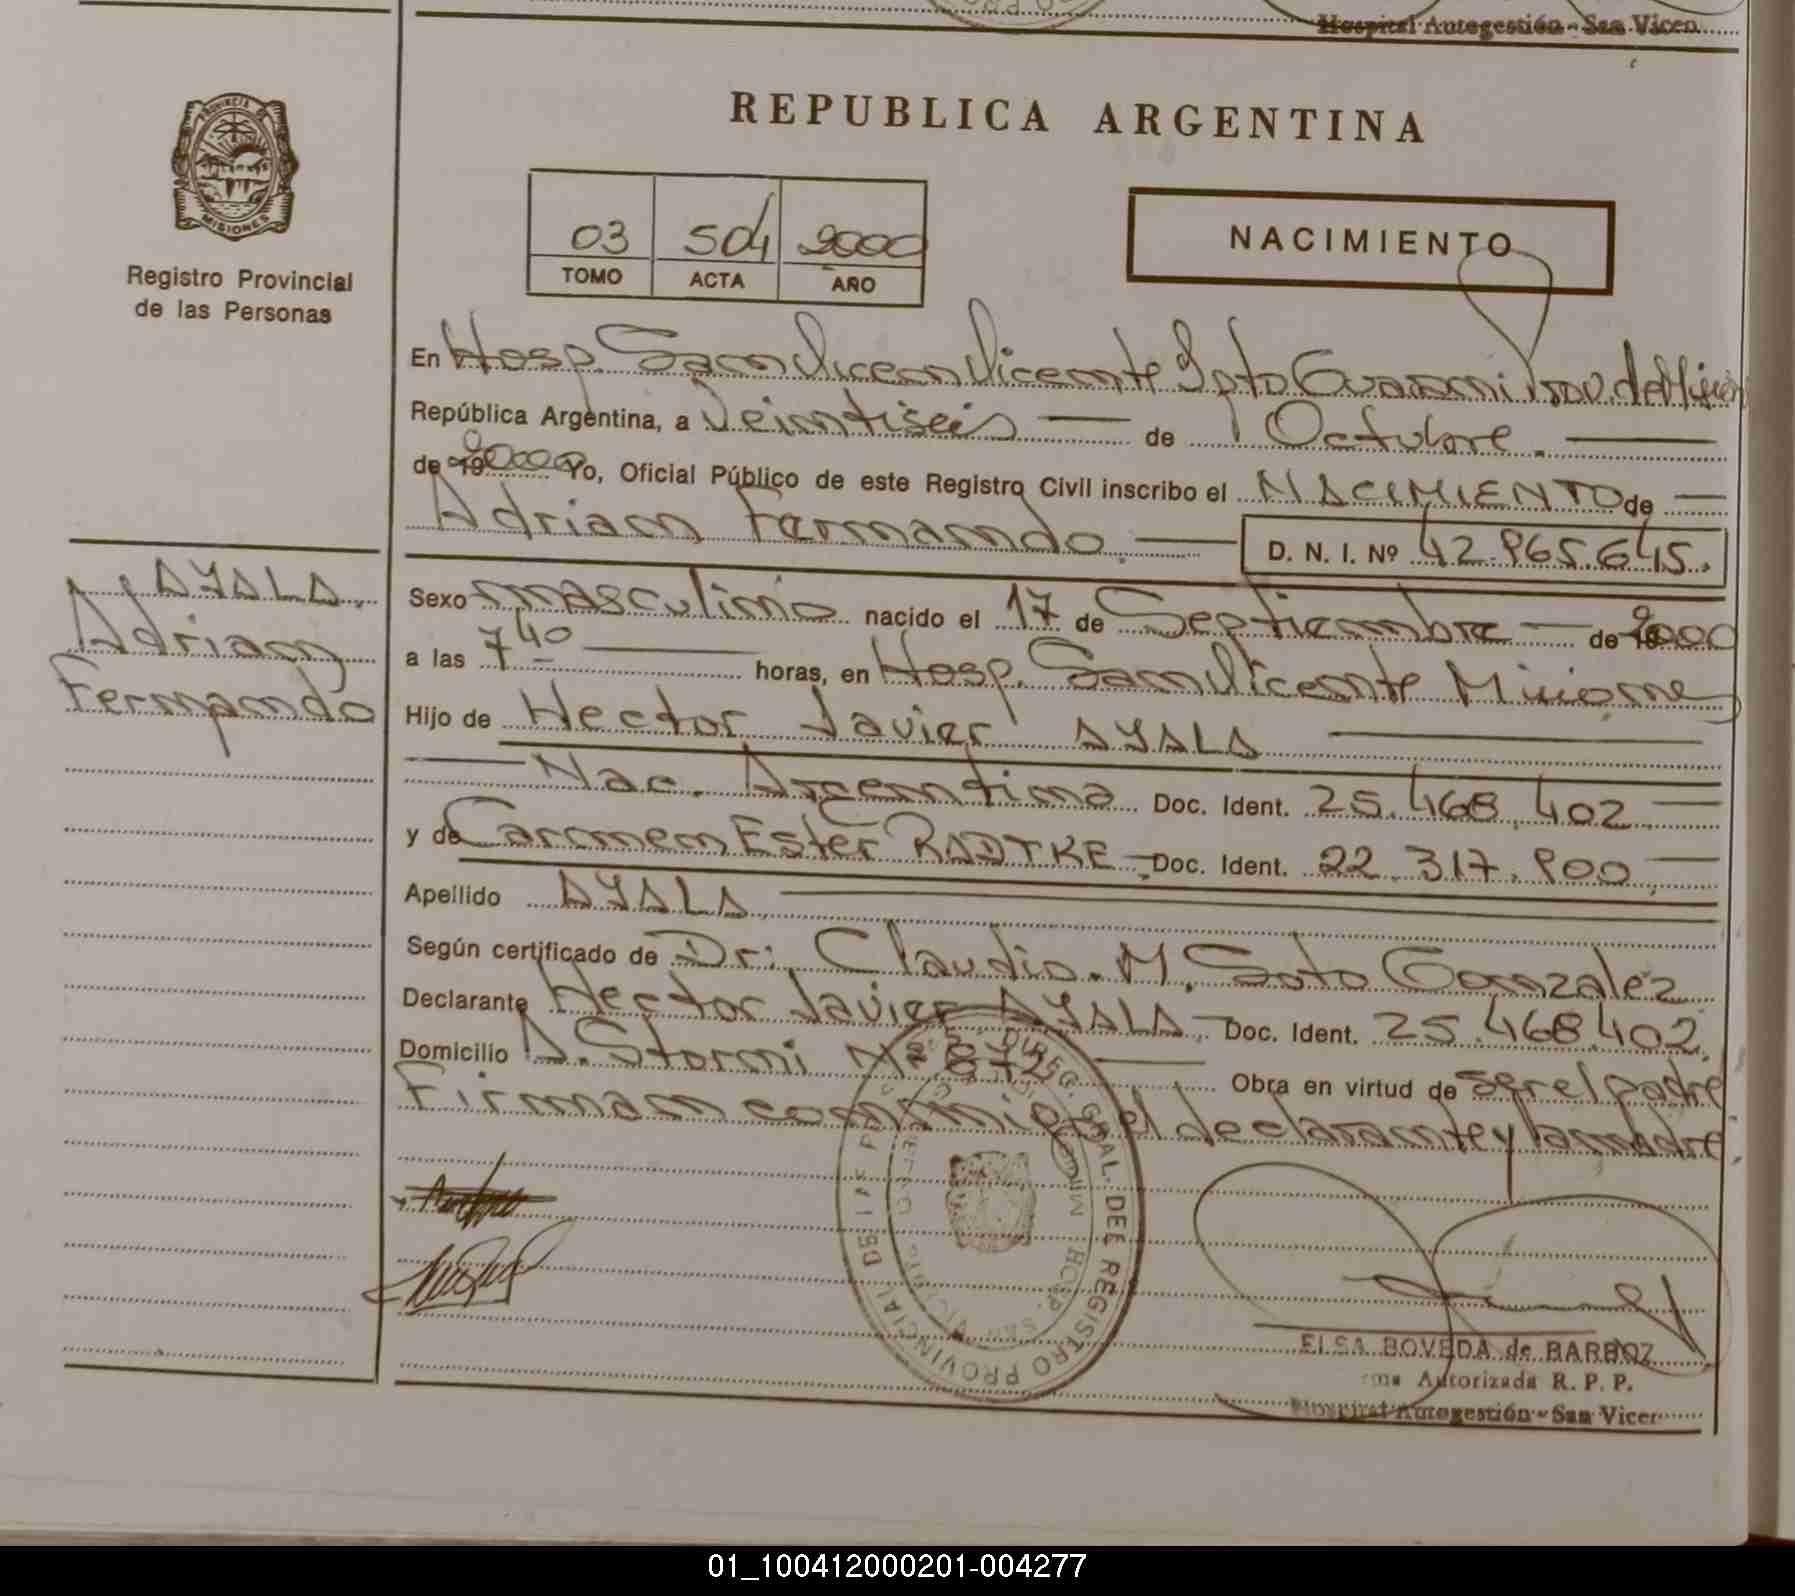 Hospital Autogestión - San Vicen
REPUBLICA ARGENTINA
PROVINCIA DE
MISIONES
Registro Provincial
de las Personas
03 504 2000
TOMO ACTA AÑO
NACIMIENTO
En Hosp. San Vicen Vicente Dpto Guarani Prov. de
República Argentina, a Veintiseis — de Octubre. —
de 19 2000 Yo, Oficial Público de este Registro Civil inscribo el NACIMIENTO de —
Adrian Fernando. — D. N. I. Nº 42.965.645.
AYALA,
Adrian
Fernando
Sexo masculino nacido el 17 de Septiembre — de 2000
a las 7 40 — horas, en Hosp. San Vicente Misiones
Hijo de Hector Javier AYALA —
— Nac. Argentina Doc. Ident. 25.468.402 —
y de Carmen Ester RADTKE — Doc. Ident. 22.317.900, —
Apellido AYALA —
Según certificado de Dr: Claudio. M. Soto Gonzalez
Declarante Hector Javier AYALA — Doc. Ident. 25.468.402.
Domicilio A. Storni Nº — Obra en virtud de ser el padre
Firman conmigo el declarante y la madre
DIREC. GRAL. DEL REGISTRO PROVINCIAL DE LAS
HOSP. SAN VICENTE
ELSA BOVEDA de BARBOZ
Autorizada R. P. P.
Hospital Autogestión - San Vicen
01_100412000201-004277